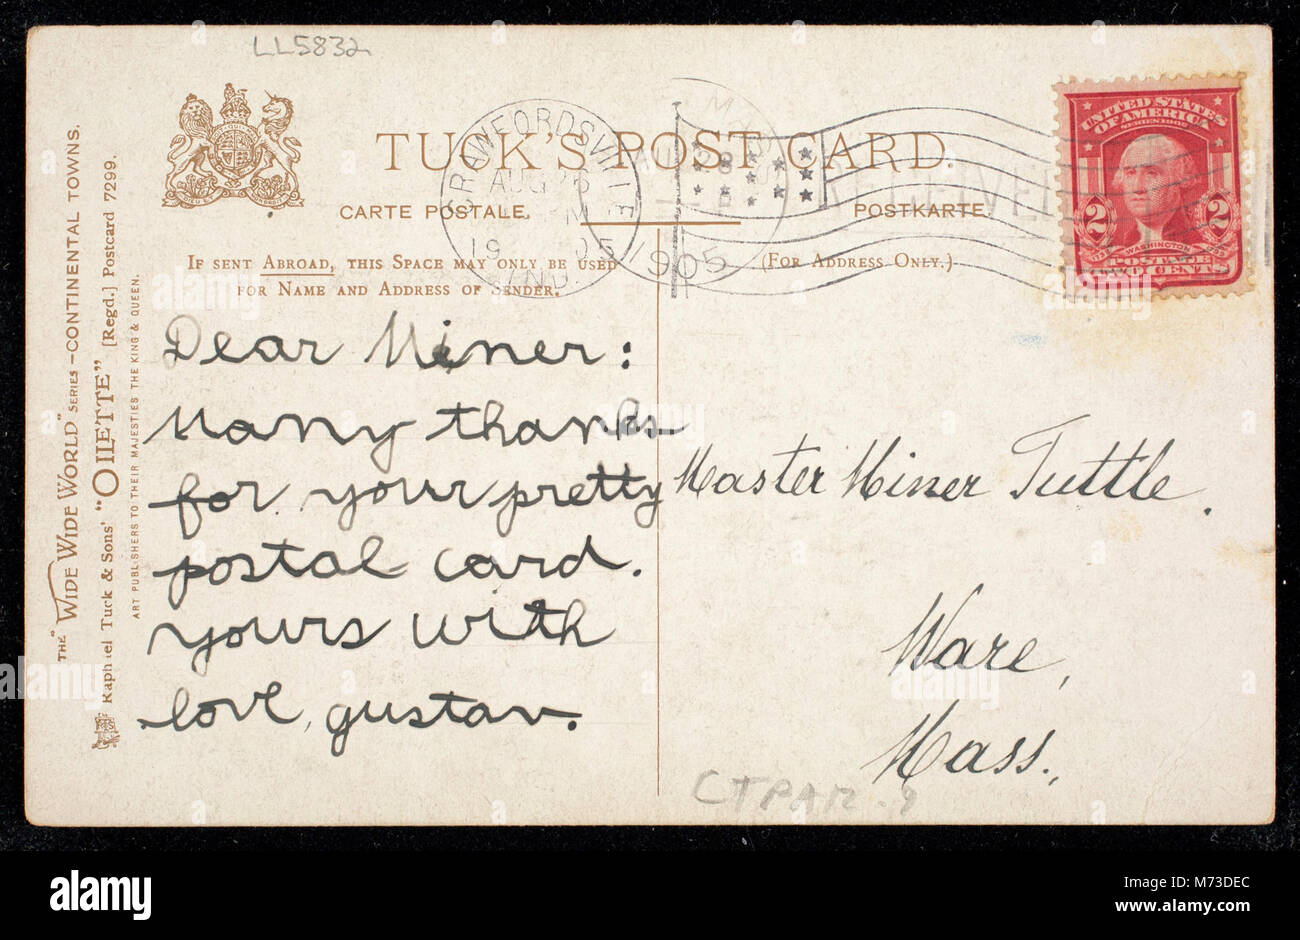 LL5832
TUCK'S POST CARD.
CARTE POSTALE.
POSTKARTE.
IF SENT ABROAD, THIS SPACE MAY ONLY BE USED
FOR NAME AND ADDRESS OF SENDER.
(FOR ADDRESS ONLY.)
CRAWFORDSVILLE
AUG 26
M
19 05
IND.
28
1905
RECEIVED
UNITED STATES
OF AMERICA
SERIES 1902
2 2
WASHINGTON
POSTAGE
TWO CENTS
THE "WIDE WIDE WORLD" SERIES - CONTINENTAL TOWNS.
Raphael Tuck & Sons' "OILETTE" [Regd.] Postcard 7299.
ART PUBLISHERS TO THEIR MAJESTIES THE KING & QUEEN.
Dear Miner:
Many thanks
for your pretty
postal card.
yours with
love, gustav.
Master Miner Tuttle.
Ware,
Mass.
CTPAR-9
alamy
Image ID: M73DEC
www.alamy.com